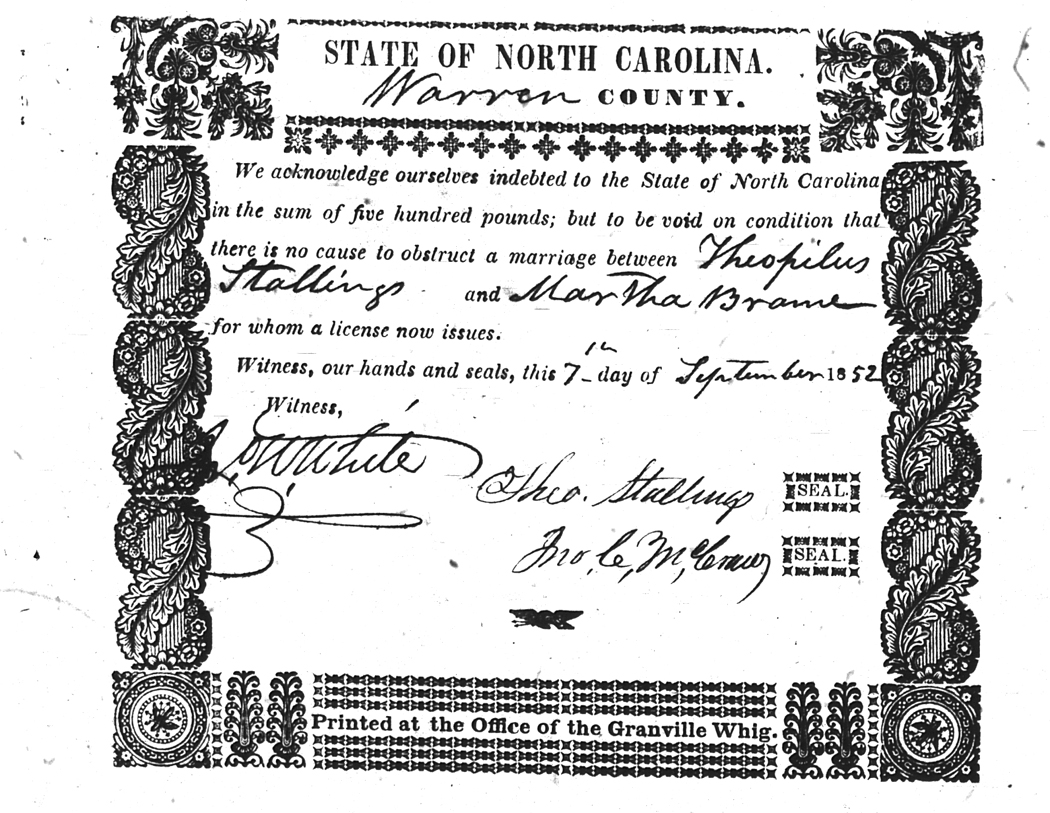 STATE OF NORTH CAROLINA.
Warren COUNTY.
We acknowledge ourselves indebted to the State of North Carolina
in the sum of five hundred pounds; but to be void on condition that
there is no cause to obstruct a marriage between Theopilus
Stallings and Martha Brame
for whom a license now issues.
Witness, our hands and seals, this 7th day of September 1852
Witness,
White
Theo. Stallings SEAL.
Jno, C, McCraw SEAL.
Printed at the Office of the Granville Whig.